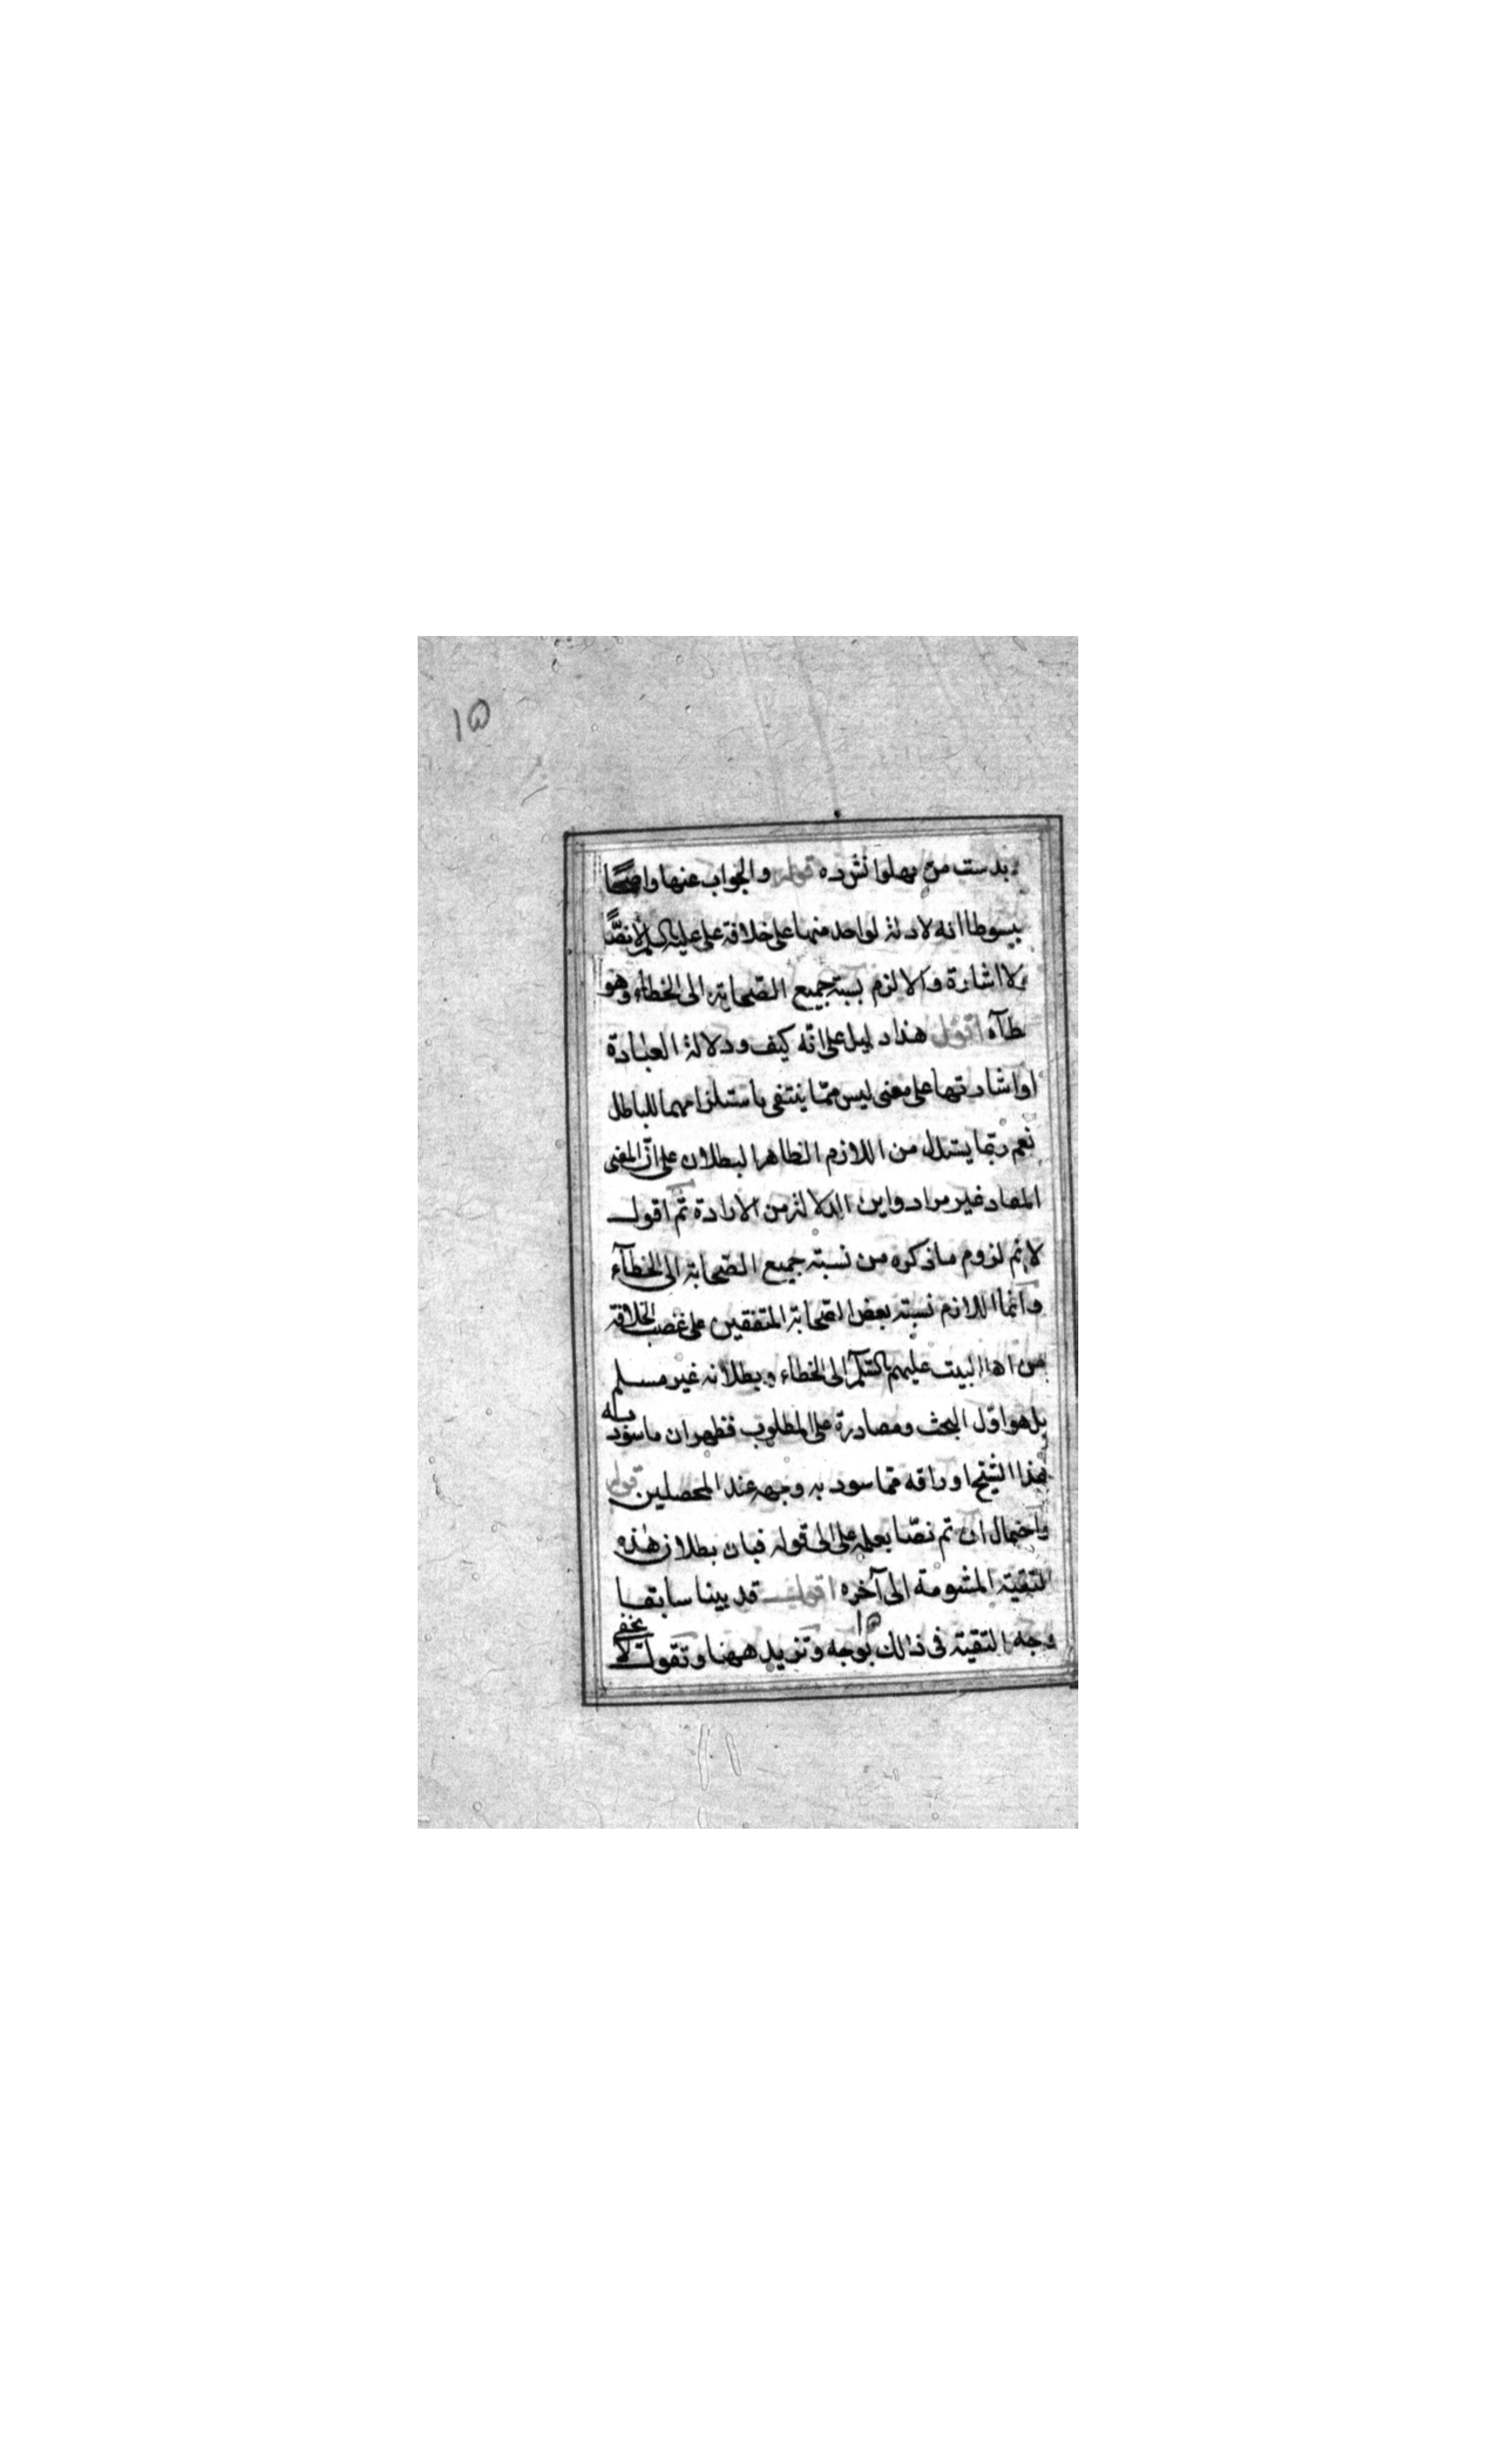 ١٥
بدست من پهلوانش ده قوله والجواب عنها واضحًا
بسوطا انه لا دلالة لواحد منها على خلافة على عليه السلم لا نصًّا
ولا اشارة والا لزم نسبة جميع الصحابة الى الخطاء وهو
طآه اقول هذا دليل على انه كيف ودلالة العبادة
او اشارتها على معنى ليس ممّا ينتفى باستلزامهما للباطل
نعم ربّما يستدل من اللازم الظاهر البطلان على انّ المعنى
المصاد غير مراد واين الدلالة من الارادة ثم اقول
لانم لزوم ما ذكره من نسبة جميع الصّحابة الى الخطآء
وانما اللازم نسبة بعض الصّحابة المتفقين على غصب الخلافة
من اهل البيت عليهم السّلم الى الخطاء وبطلانه غير مسلم
بل هو اوّل البحث ومصادرة على المطلوب فظهر ان ما سوّد به
هذا الشيخ اوراقه ممّا سود به وجهه عند المحصلين قوله
واحتمال ان ثم نصّا يعلمه على الى قوله فبان بطلان هذه
التقية المشومة الى آخره اقول قد بينا سابقا
وجه التقية فى ذلك بوجه ونزيد ههنا ونقول لا يخفى